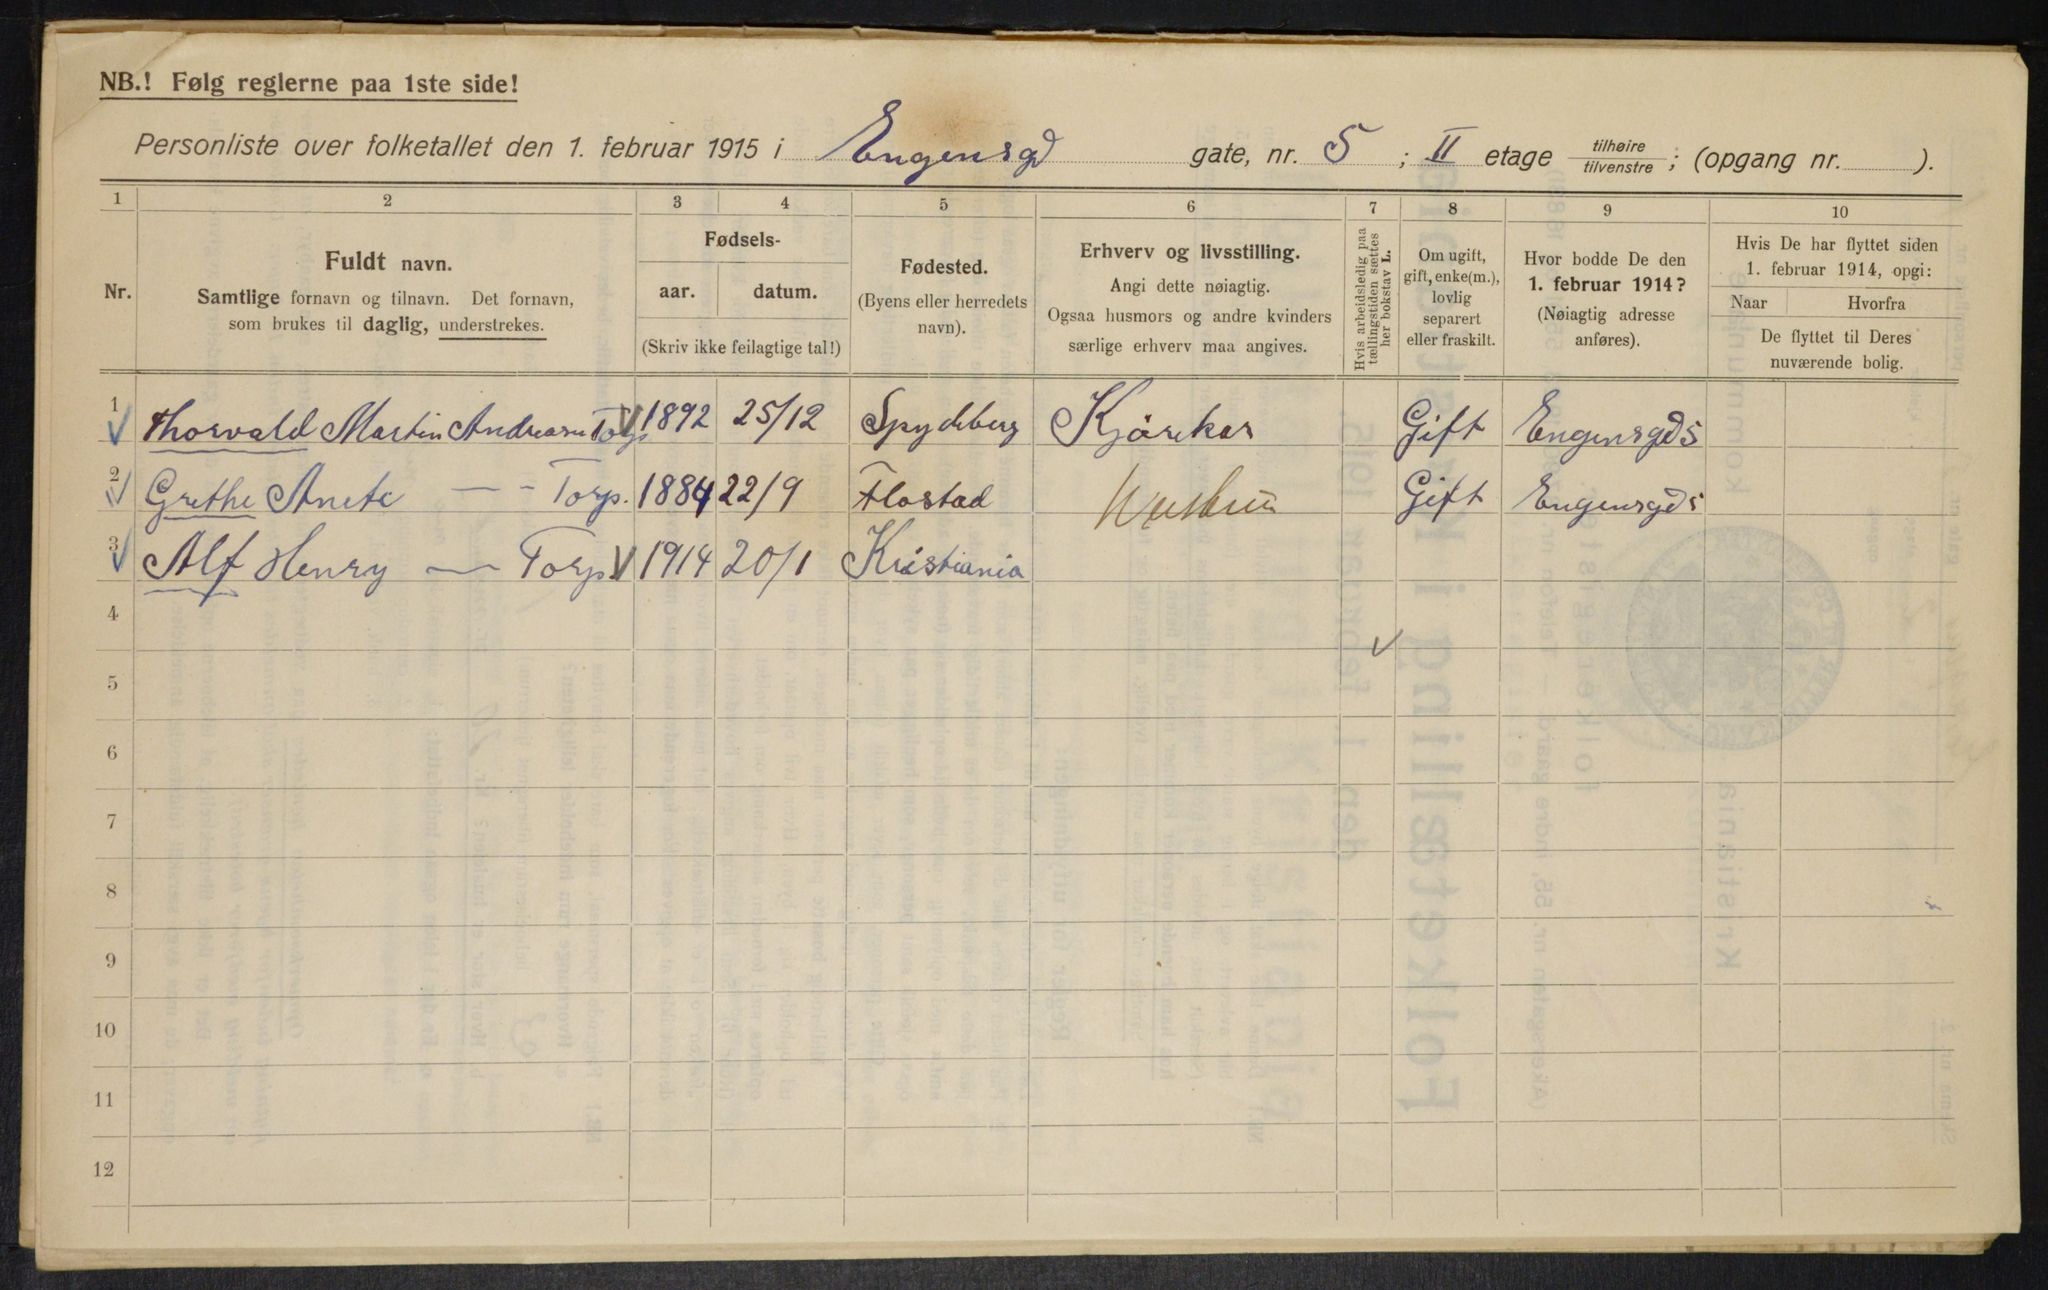 NB.! Følg reglerne paa 1ste side!
Personliste over folketallet den 1. februar 1915 i Engensgd gate, nr. 5 ; II etage tilhøire / tilvenstre ; (opgang nr. ).
1 2 3 4 5 6 7 8 9 10
Nr.
Fuldt navn.
Samtlige fornavn og tilnavn. Det fornavn,
som brukes til daglig, understrekes.
Fødsels-
aar. datum.
(Skriv ikke feilagtige tal!)
Fødested.
(Byens eller herredets
navn).
Erhverv og livsstilling.
Angi dette nøiagtig.
Ogsaa husmors og andre kvinders
særlige erhverv maa angives.
Hvis arbeidsledig paa
tællingstiden sættes
her bokstav L.
Om ugift,
gift, enke(m.),
lovlig
separert
eller fraskilt.
Hvor bodde De den
1. februar 1914?
(Nøiagtig adresse
anføres).
Hvis De har flyttet siden
1. februar 1914, opgi:
Naar Hvorfra
De flyttet til Deres
nuværende bolig.
1 Thorvald Martin Andreasen Torp 1892 25/12 Spydeberg Kjørekar Gift Engensgd 5
2 Grethe Anete — - Torp. 1884 22/9 Flostad Gift Engensgd 5
3 Alf Henry — Torp. 1914 20/1 Kristiania
4
5
6
7
8
9
10
11
12